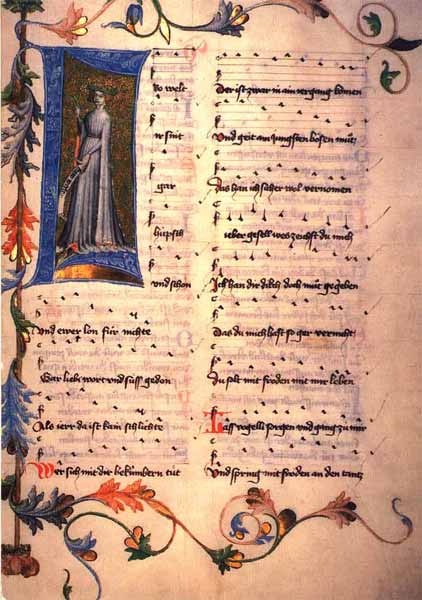 Fro welt
ir sint
gar
hüpsch
vnd schon
Vnd ewer lon für nichte
Gar liebi wort vnd süss gedon
Also ierr da ist kain schlichte
Wer sich mit dir bekümbern tüt
Der ist zwar in ain iergang komen
Vnd geit am jungsten bösen müt
Das han ich sicher wol vernomen
Lieber gesell wes zeichst du mich
Ich han dir dik doch müt gegeben
Das du mich hast so ger vernicht
Du solt mit fröden mit mir leben
Lass vogelli sorgen vnd gang zu mir
Vnd spring mit fröden an den tantz